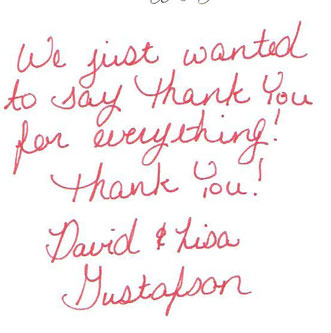 We just wanted
to say Thank You
for everything!
Thank You!
David & Lisa
Gustafson